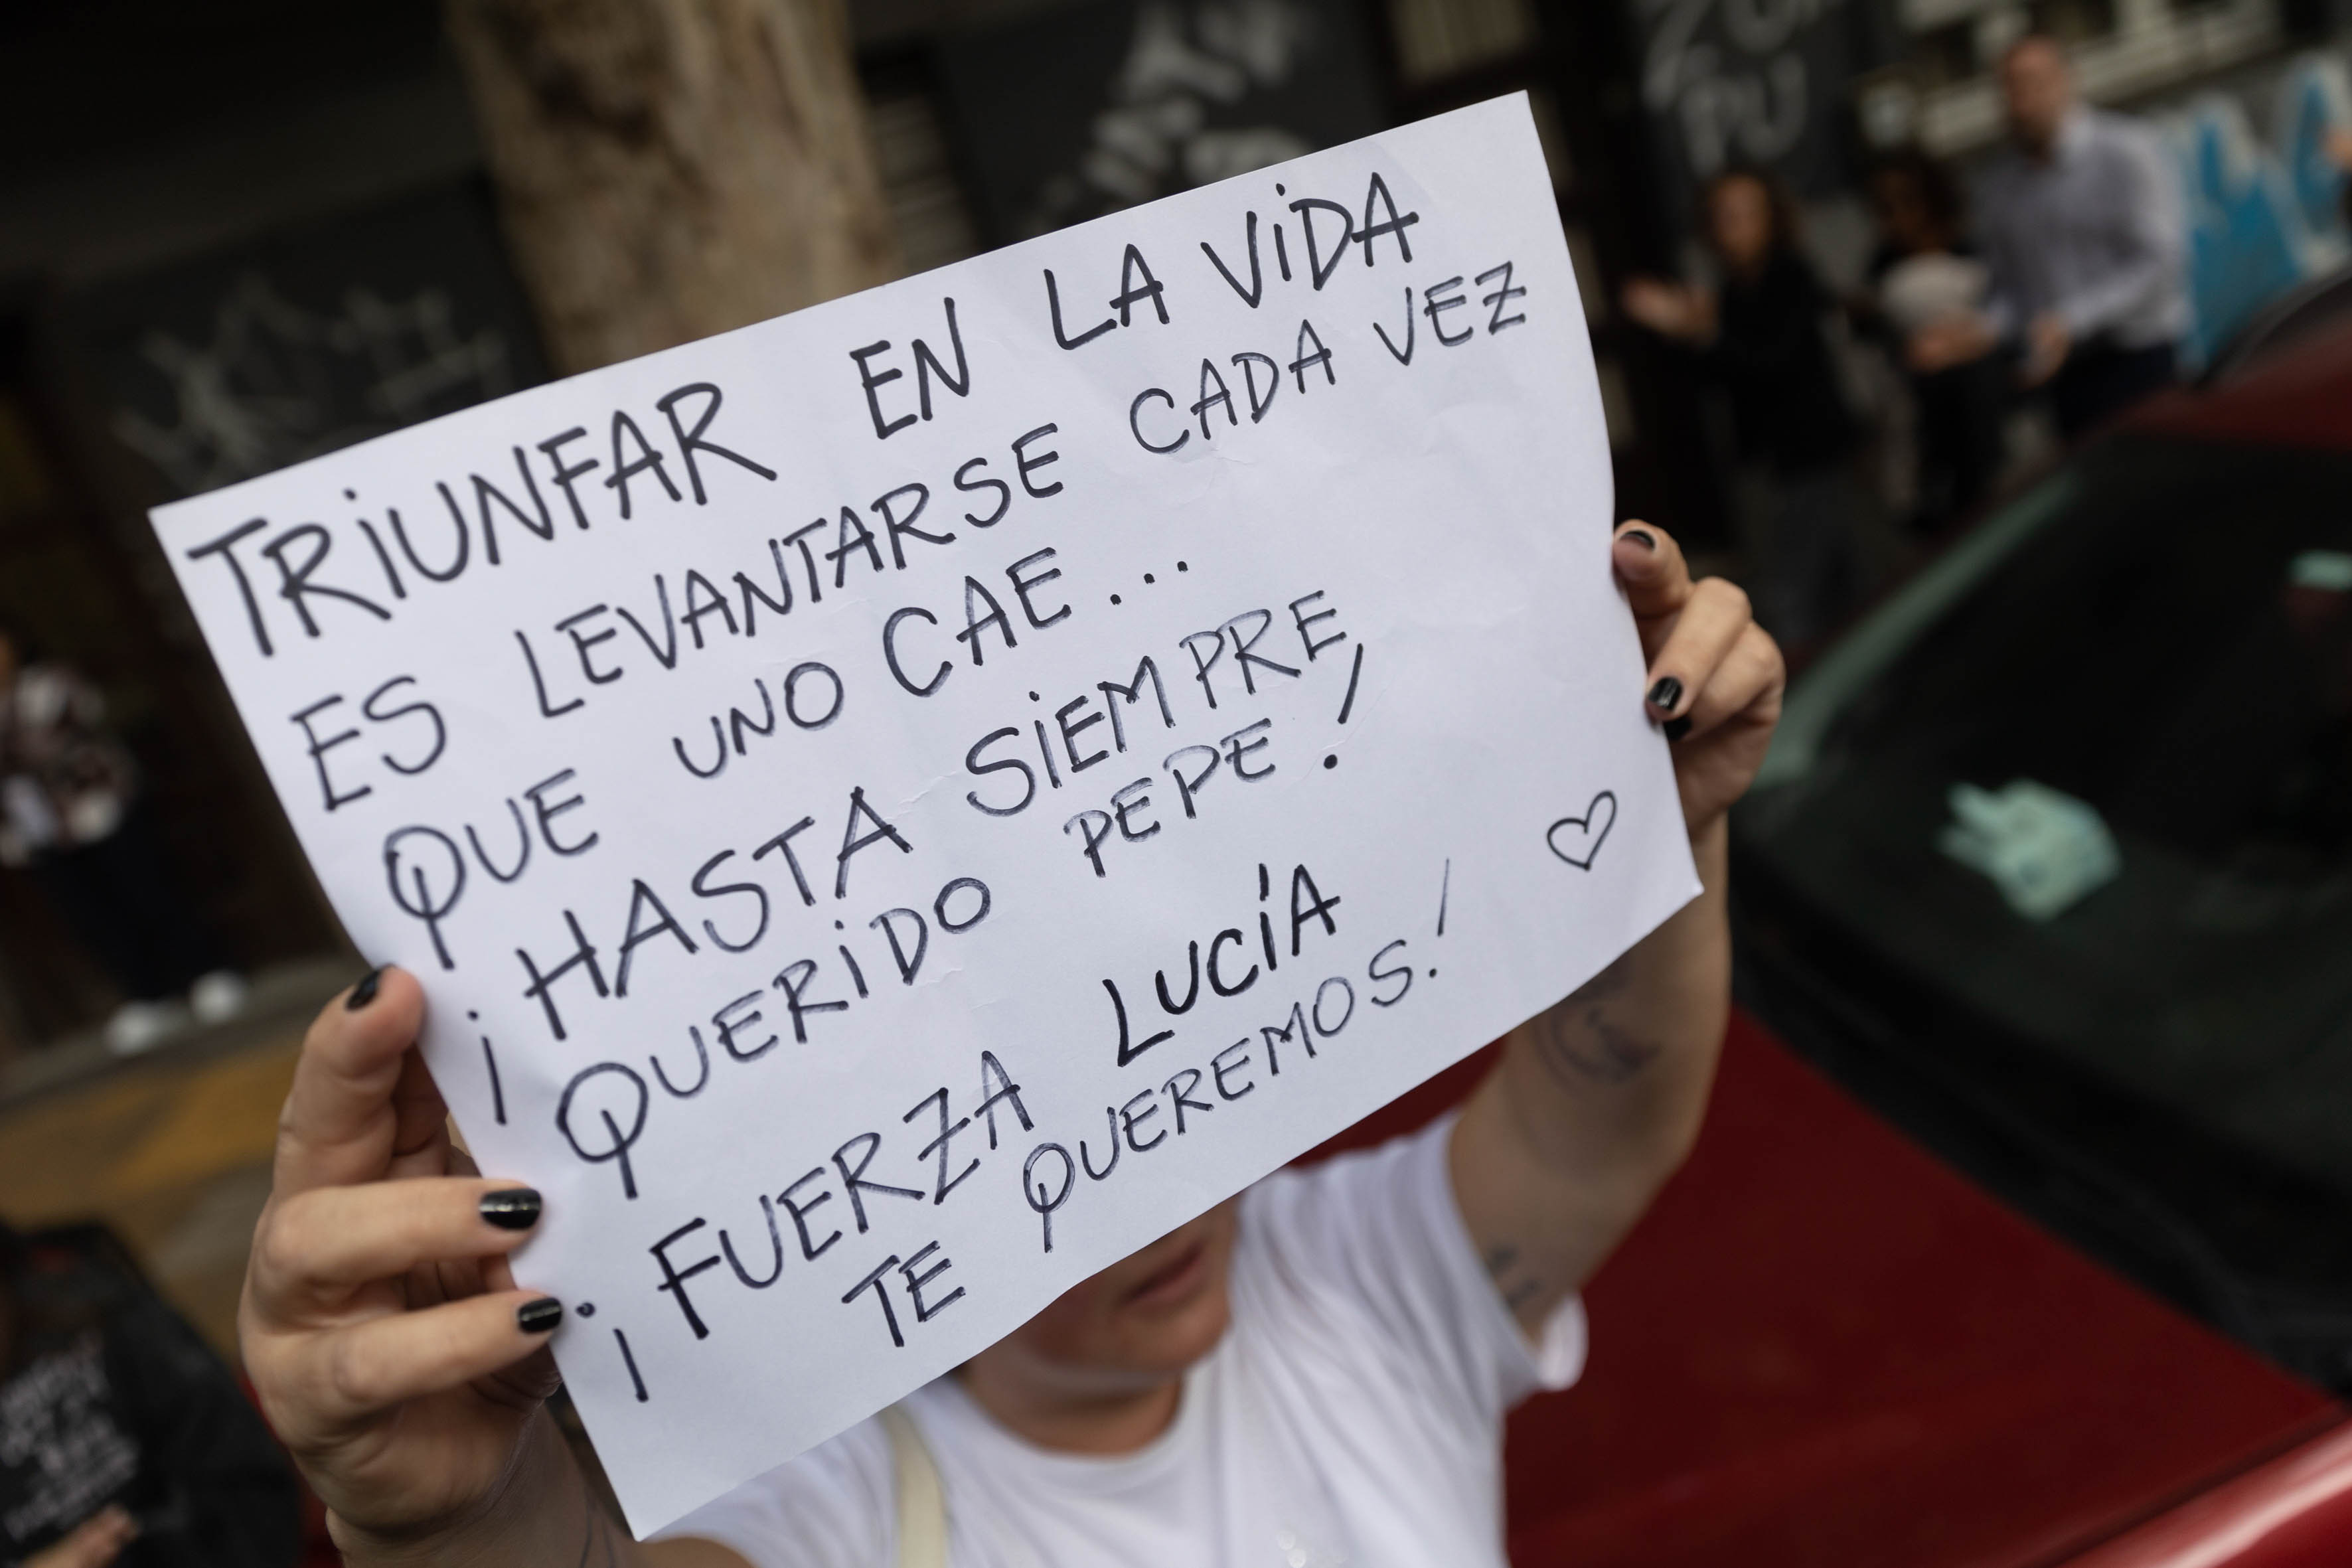 TRIUNFAR EN LA VIDA
ES LEVANTARSE CADA VEZ
QUE UNO CAE...
¡HASTA SIEMPRE,
QUERIDO PEPE!
¡FUERZA LUCÍA
TE QUEREMOS!